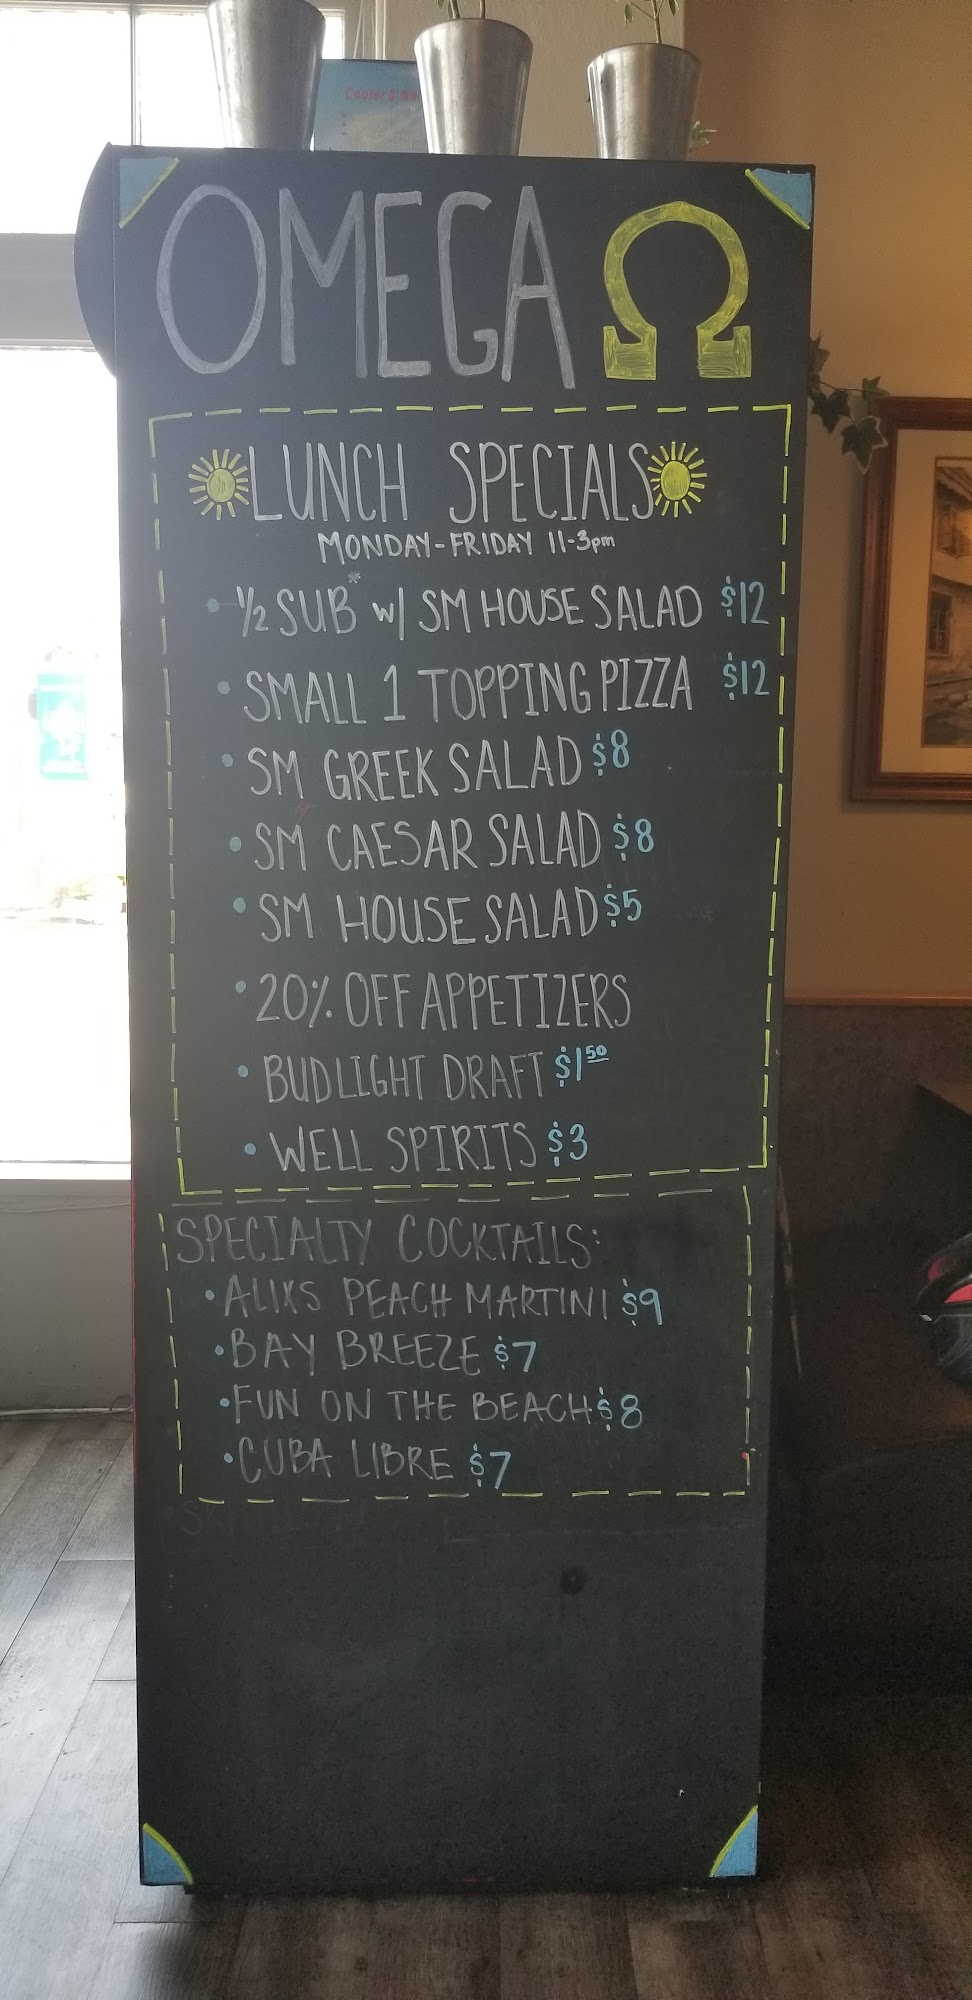 OMEGA Ω
LUNCH SPECIALS
MONDAY-FRIDAY 11-3pm
• 1/2 SUB* w/ SM HOUSE SALAD $12
• SMALL 1 TOPPING PIZZA $12
• SM GREEK SALAD $8
• SM CAESAR SALAD $8
• SM HOUSE SALAD $5
• 20% OFF APPETIZERS
• BUDLIGHT DRAFT $1 50
• WELL SPIRITS $3
SPECIALTY COCKTAILS:
• ALIXS PEACH MARTINI $9
• BAY BREEZE $7
• FUN ON THE BEACH $8
• CUBA LIBRE $7